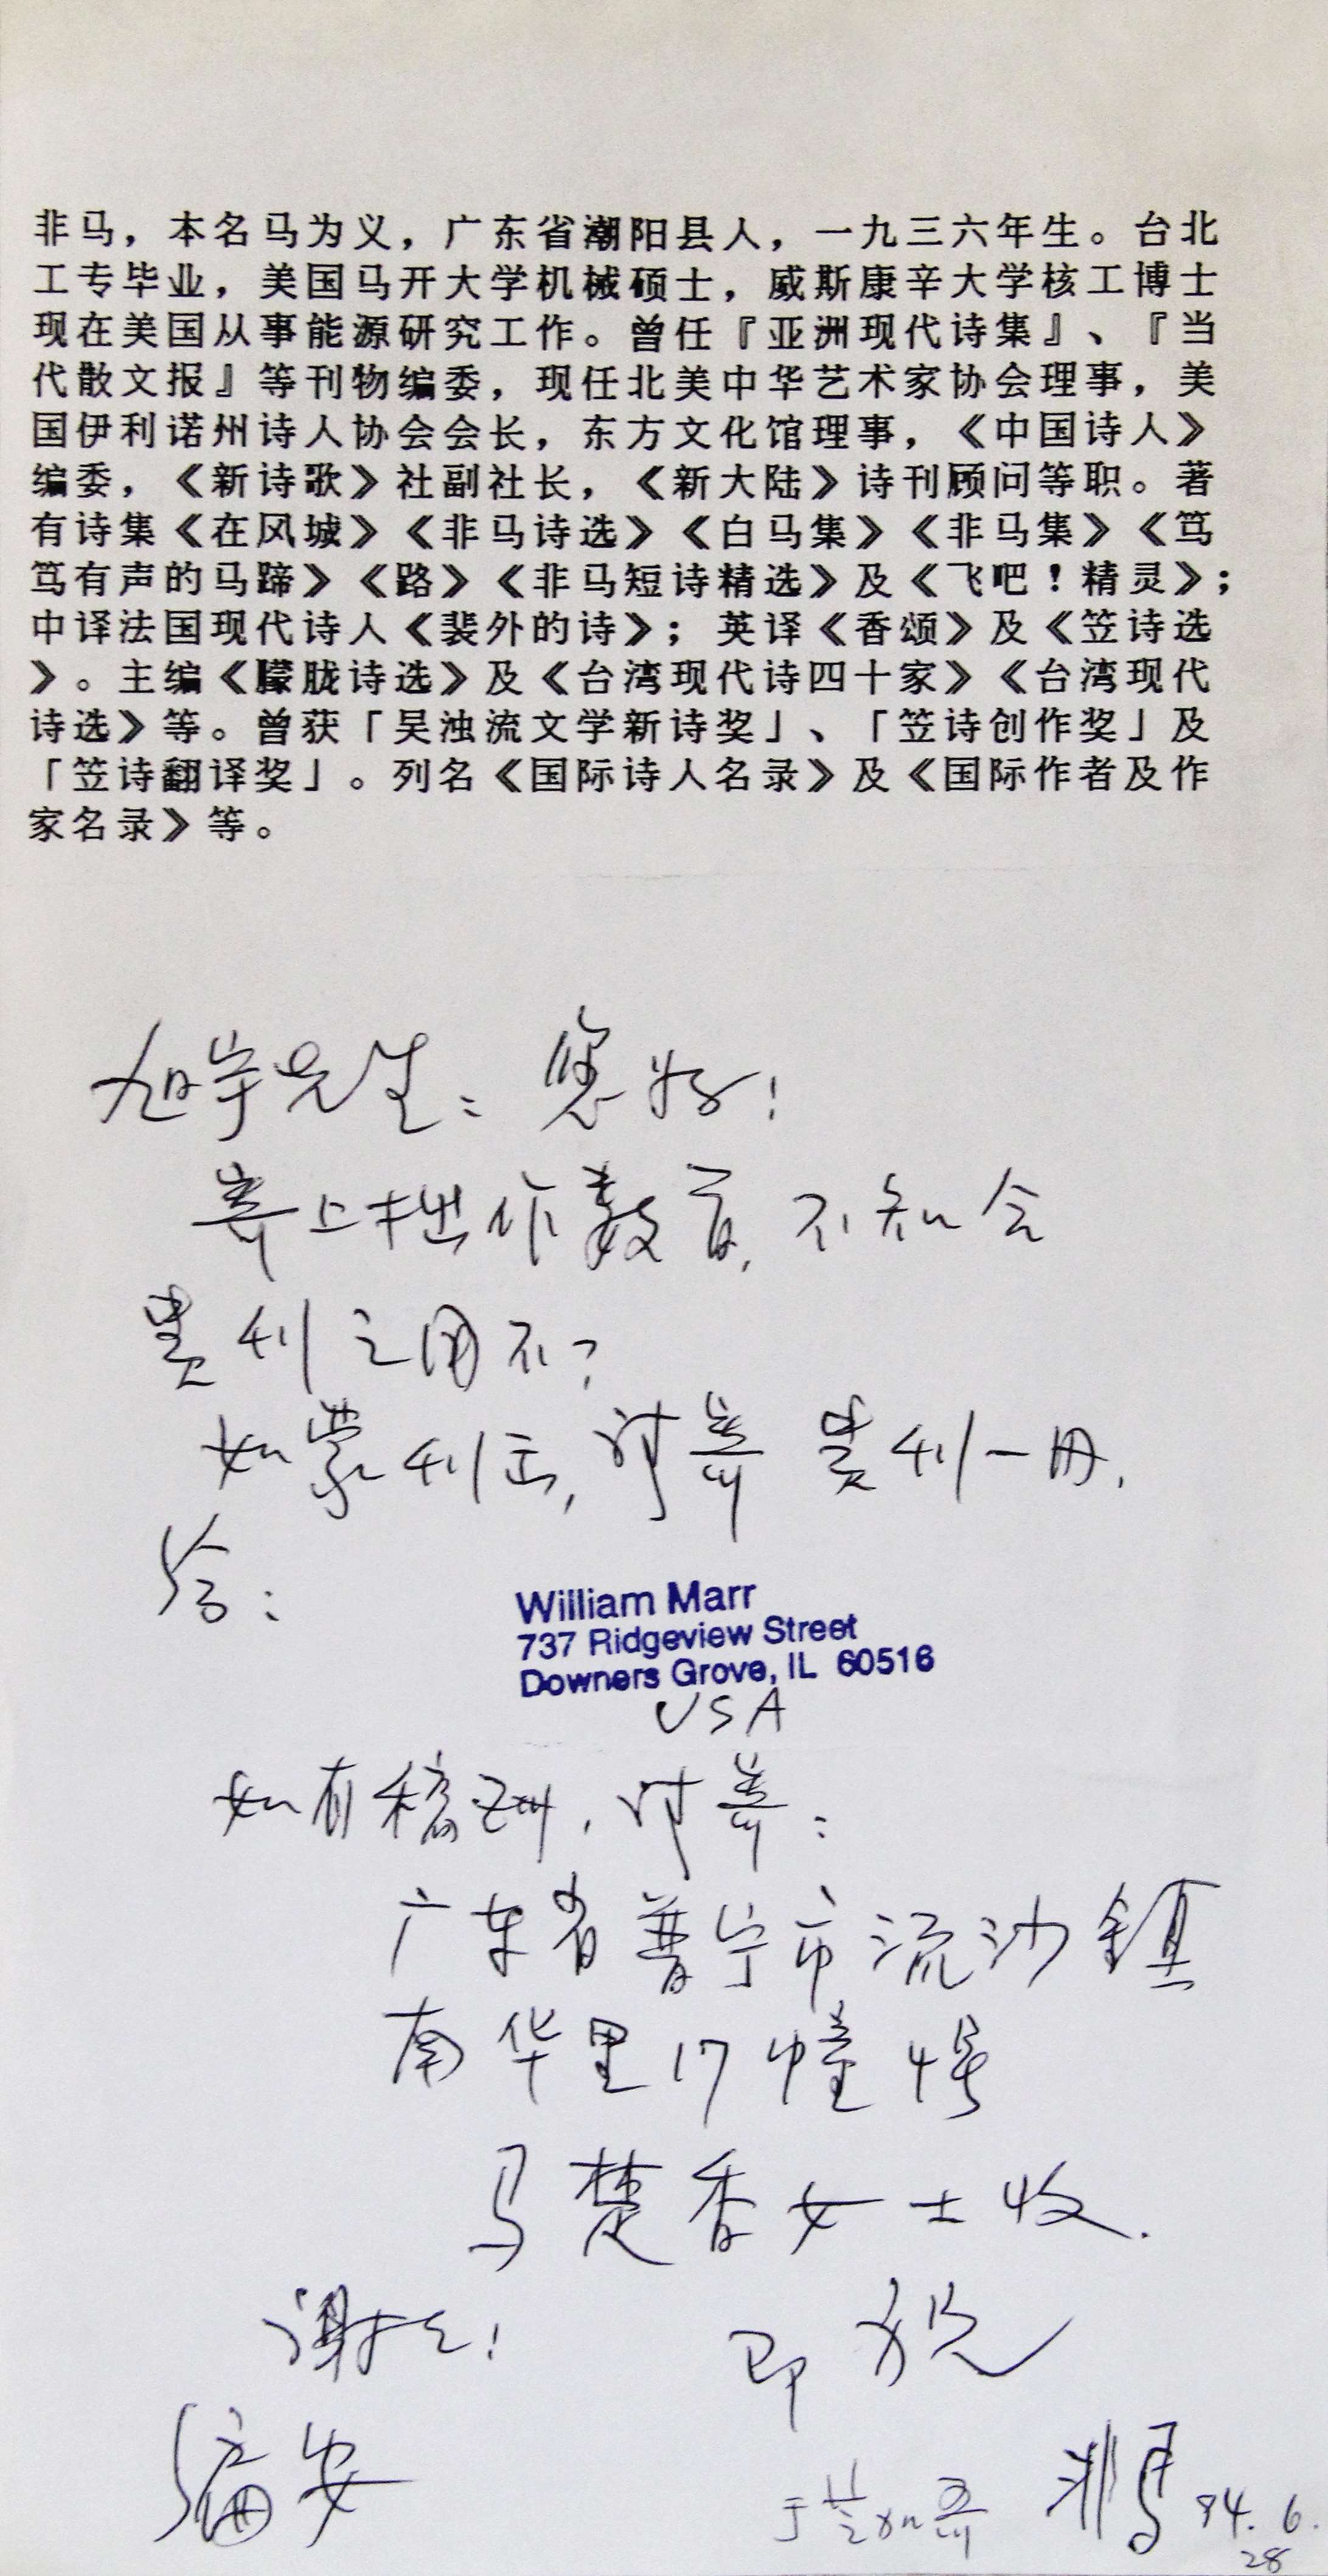 非马，本名马为义，广东省潮阳县人，一九三六年生。台北
工专毕业，美国马开大学机械硕士，威斯康辛大学核工博士
现在美国从事能源研究工作。曾任『亚洲现代诗集』、『当
代散文报』等刊物编委，现任北美中华艺术家协会理事，美
国伊利诺州诗人协会会长，东方文化馆理事，《中国诗人》
编委，《新诗歌》社副社长，《新大陆》诗刊顾问等职。著
有诗集《在风城》《非马诗选》《白马集》《非马集》《笃
笃有声的马蹄》《路》《非马短诗精选》及《飞吧！精灵》；
中译法国现代诗人《裴外的诗》；英译《香颂》及《笠诗选
》。主编《朦胧诗选》及《台湾现代诗四十家》《台湾现代
诗选》等。曾获「吴浊流文学新诗奖」、「笠诗创作奖」及
「笠诗翻译奖」。列名《国际诗人名录》及《国际作者及作
家名录》等。
旭宇先生：您好！
寄上拙作数首，不知合
贵刊之用不？
如蒙刊出，请寄贵刊一册，
给：
William Marr
737 Ridgeview Street
Downers Grove, IL 60516
USA
如有稿酬，请寄：
广东省普宁市流沙镇
南华里17幢4号
马楚香女士收.
谢谢！ 即祝
编安
非马 94.6.
28